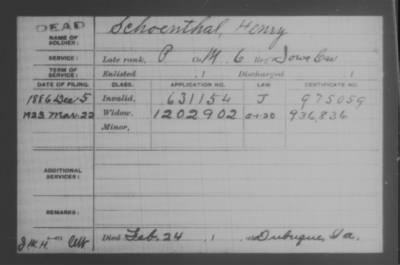 DEAD
NAME OF SOLDIER: Schoenthal, Henry
SERVICE: Late rank, P Co. M, 6 Reg't Iowa Cav
TERM OF SERVICE: Enlisted , 1 Discharged , 1
DATE OF FILING. CLASS. APPLICATION NO. LAW. CERTIFICATE NO.
1886 Dec 5 Invalid, 631154 J 975059
1923 Mar. 22 Widow, 1202902 936,836
Minor,
ADDITIONAL SERVICES:
REMARKS:
Died Feb. 24 , 1 , at Dubuque, Ia.